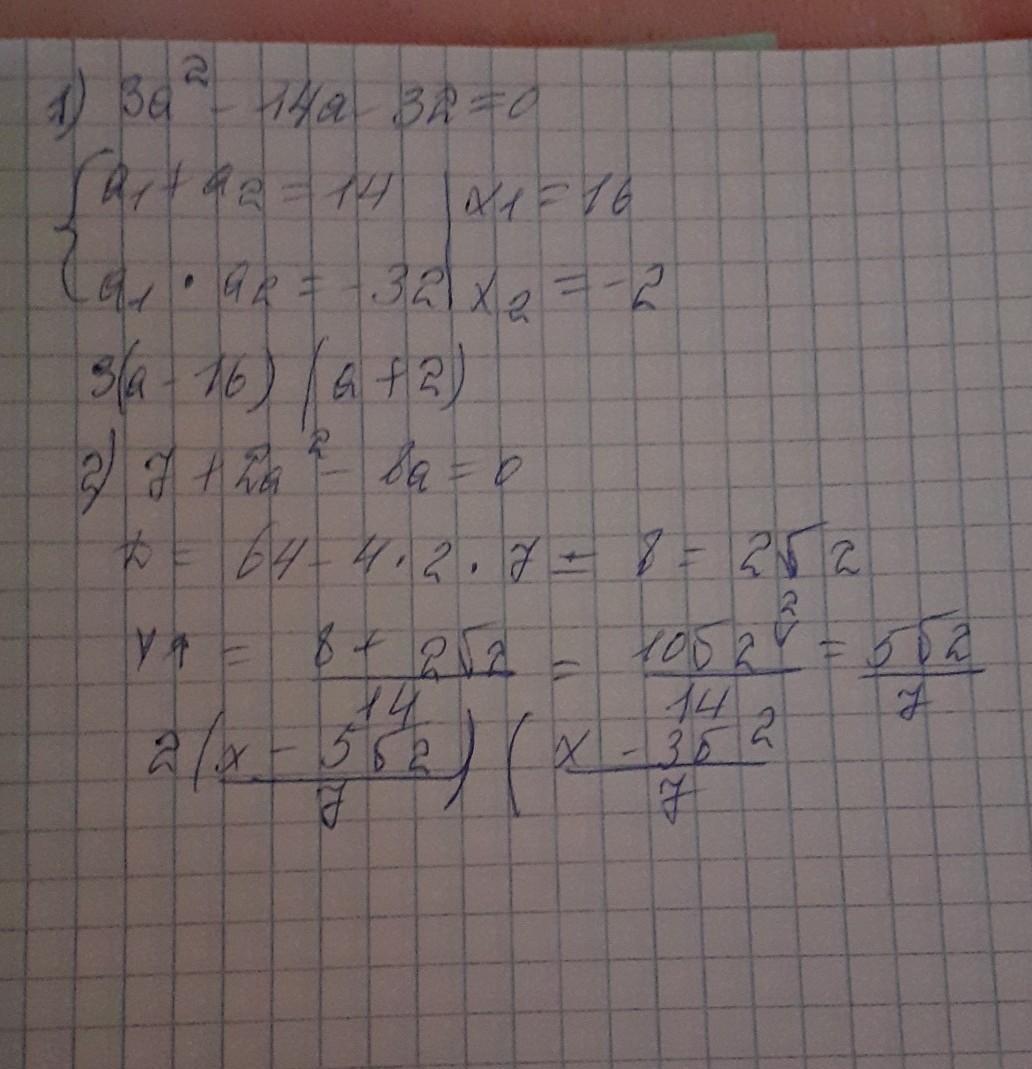 1) 3a² - 14a - 32 = 0
{ a₁ + a₂ = 14 | x₁ = 16
a₁ · a₂ = -32 | x₂ = -2
3(a - 16) (a + 2)
2) 7 + 2a² - 8a = 0
D = 64 - 4 · 2 · 7 = 8 = 2√2
x₁ = (8 + 2√2)/14 = 10√2/14 = 5√2/7
2((x - 5√2)/7) ((x - 3√2)/7